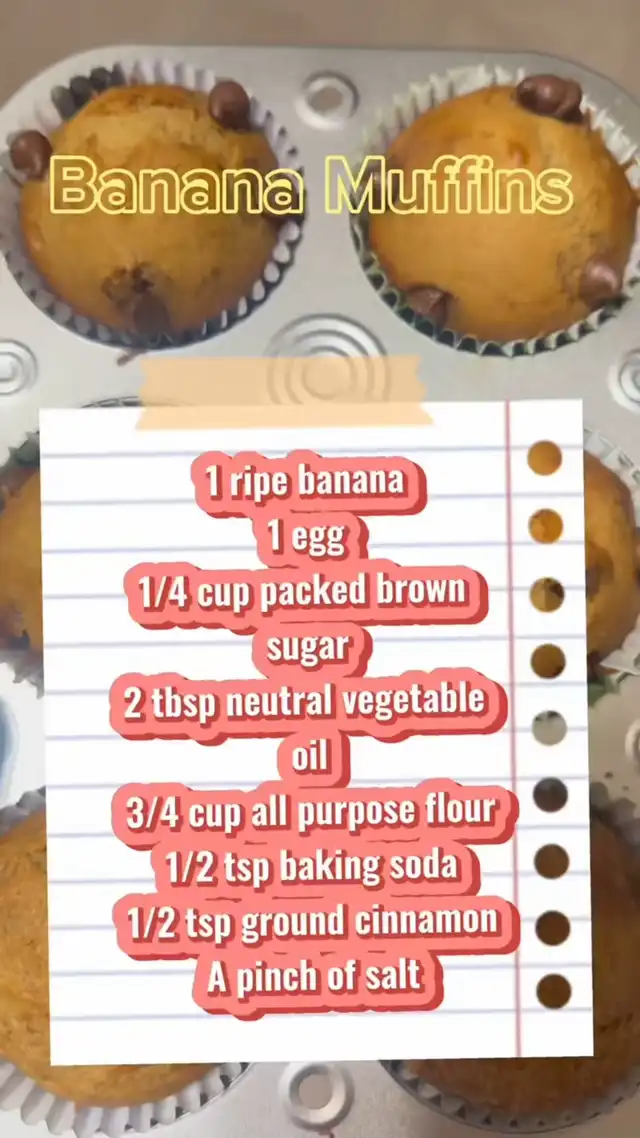 Banana Muffins
1 ripe banana
1 egg
1/4 cup packed brown
sugar
2 tbsp neutral vegetable
oil
3/4 cup all purpose flour
1/2 tsp baking soda
1/2 tsp ground cinnamon
A pinch of salt